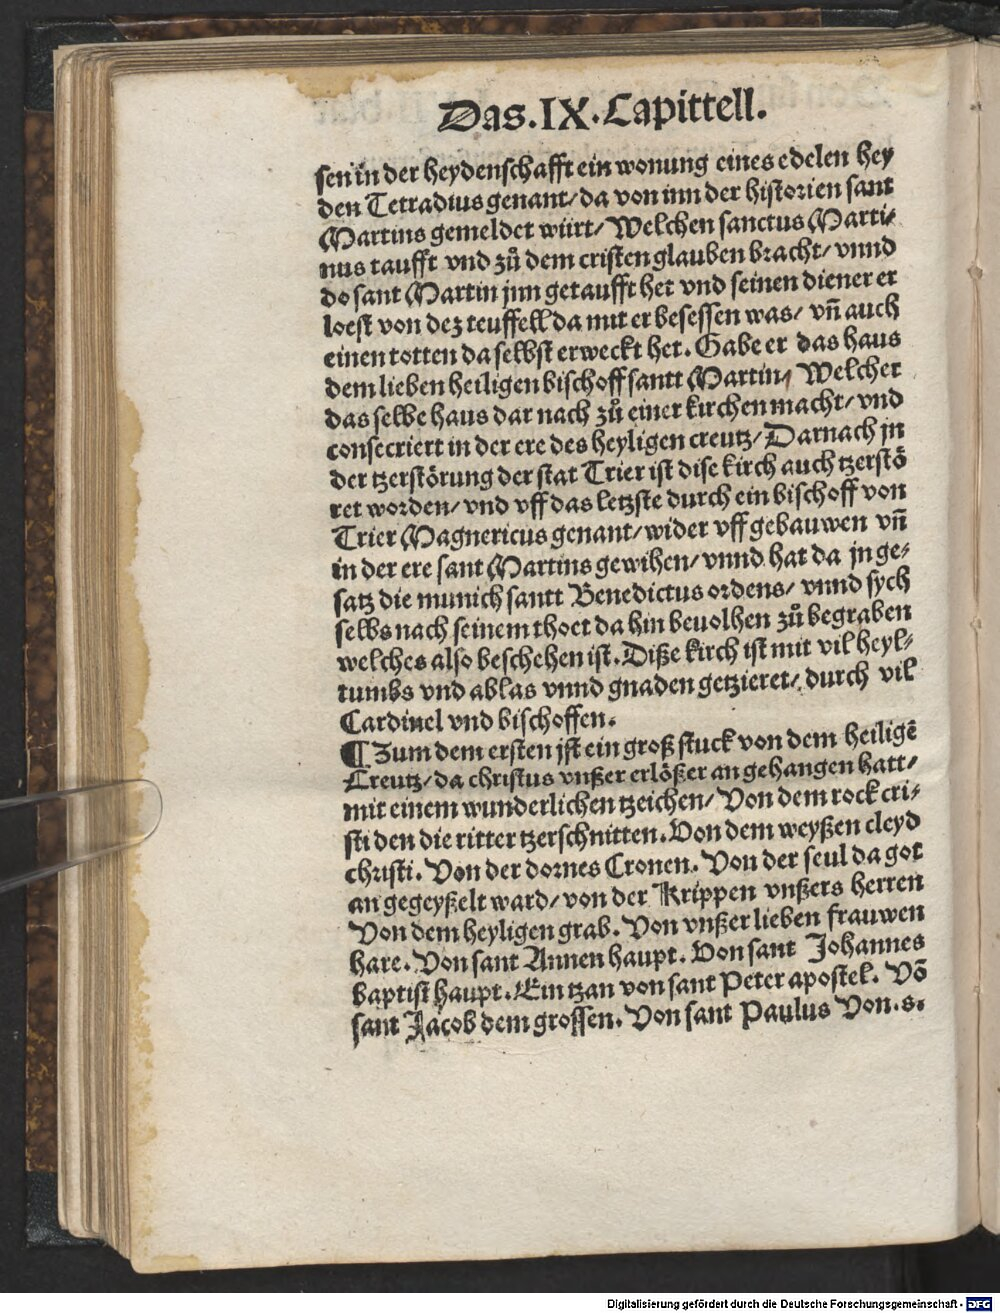 Das.IX.Capittell.
sen in der heydenschafft ein wonung eines edelen hey
den Tetradius genant/ da von inn der historien sant
Martins gemeldet würt/ Welchen sanctus Marti-
nus taufft vnd zů dem cristen glauben bracht/ vnnd
do sant Martin jnn getaufft het vnd seinen diener er
loest von dez teuffell da mit er besessen was/ vñ auch
einen totten da selbst erweckt het. Gabe er das haus
dem lieben heiligen bischoff santt Martin/ Welcher
das selbe haus dar nach zů einer kirchen macht/ vnd
consecriert in der ere des heyligen creutz/ Darnach jn
der tzerstörung der stat Trier ist dise kirch auch tzerstö
ret worden/ vnd vff das letzste durch ein bischoff von
Trier Magnericus genant/ wider vff gebauwen vñ
in der ere sant Martins gewihen/ vnnd hat da jn ge-
satz die munich santt Benedictus ordens/ vnnd sych
selbs nach seinem thoet da hin beuolhen zů begraben
welches also beschehen ist. Diße kirch ist mit vil heyl-
tumbs vnd ablas vnnd gnaden getzieret/ durch vil
Cardinel vnd bischoffen.
¶ Zum dem ersten jst ein groß stuck von dem heiligẽ
Creutz/ da christus vnßer erlößer an gehangen hatt/
mit einem wunderlichen tzeichen/ Von dem rock cri-
sti den die ritter tzerschnitten. Von dem weyßen cleyd
christi. Von der dornes Cronen. Von der seul da got
an gegeyßelt ward/ von der Krippen vnßers herren
Von dem heyligen grab. Von vnßer lieben frauwen
hare. Von sant Annen haupt. Von sant Johannes
baptist haupt. Ein tzan von sant Peter apostel. Võ
sant Jacob dem grossen. Von sant Paulus Von .s.
Digitalisierung gefördert durch die Deutsche Forschungsgemeinschaft - DFG